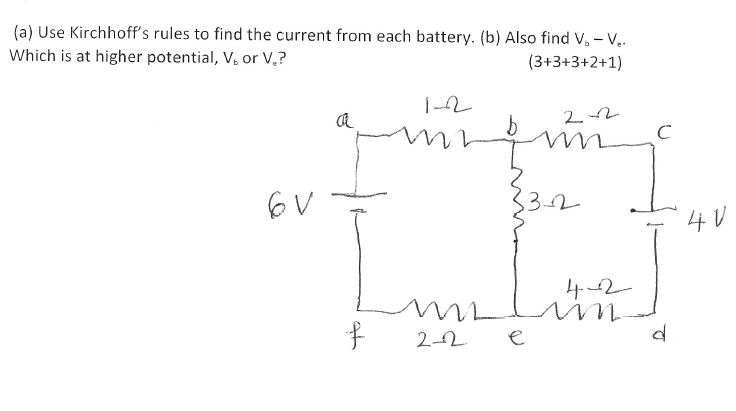 (a) Use Kirchhoff's rules to find the current from each battery. (b) Also find Vb – Ve.
Which is at higher potential, Vb or Ve?
(3+3+3+2+1)
1-Ω
2-Ω
a
b
c
6 V
3-Ω
4 V
4-Ω
f
2-Ω
e
d